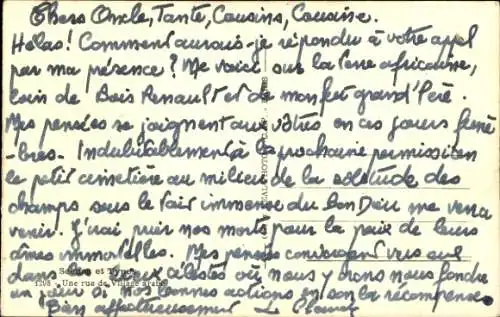 Chers Oncle, Tante, Cousins, Cousine.
Hélas! Comment aurais-je répondu à votre appel
par ma présence? Me voici sur la terre africaine,
loin de Bois Renault et de mon feu grand'Père.
Mes pensées se joignent aux vôtres en ces jours funè
-bres. Indubitablement à la prochaine permission
le petit cimetière au milieu de la solitude des
champs sous le toit immense du bon Dieu me verra
venir. J'irai prier nos morts pour la paix de leurs
âmes immortelles. Mes pensées convergent vers eux
Scènes et Types
dans lieux célestes où nous y irons nous fondre
1298 - Une rue de Village arabe
un jour si nos bonnes actions en son la récompense
Bien affectueusement